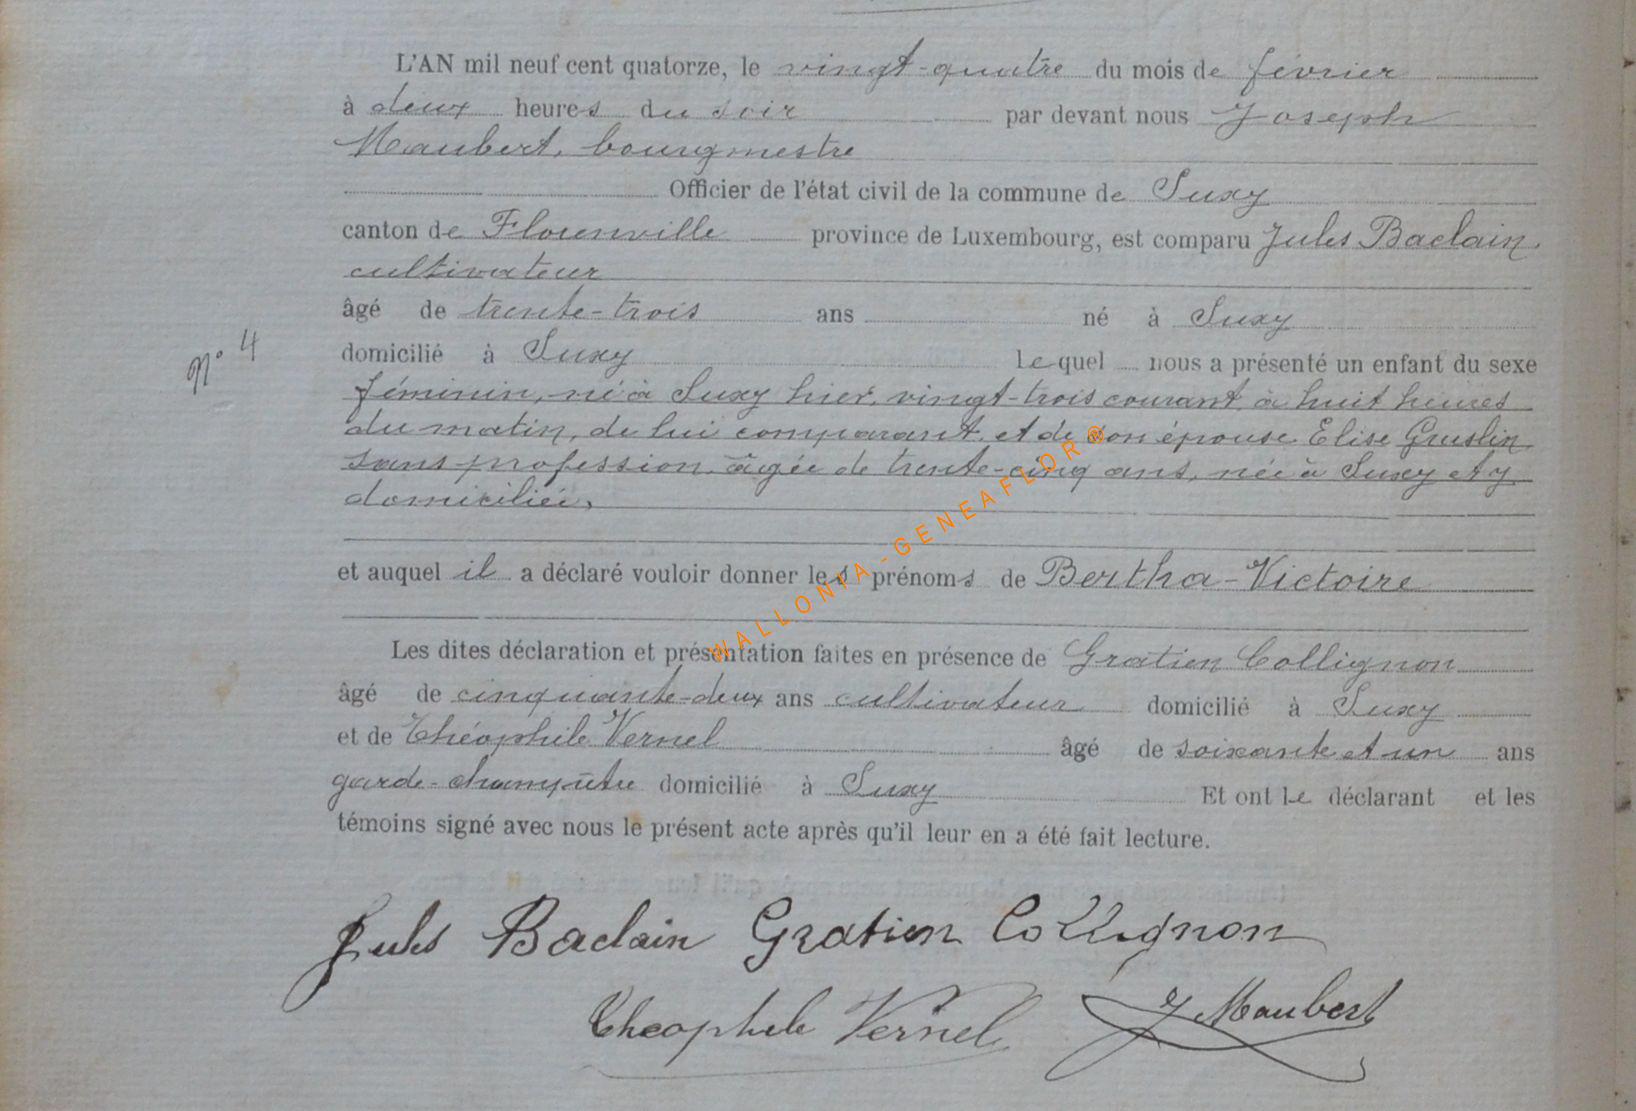 L'AN mil neuf cent quatorze, le vingt-quatre du mois de février
à deux heures du soir par devant nous Joseph
Maubert, bourgmestre
Officier de l'état civil de la commune de Suxy
canton de Florenville province de Luxembourg, est comparu Jules Baclain,
cultivateur
âgé de trente-trois ans né à Suxy
N° 4
domicilié à Suxy Lequel nous a présenté un enfant du sexe
féminin, né à Suxy hier, vingt-trois courant, à huit heures
du matin, de lui comparant, et de son épouse Elise Gruslin
sans profession, âgée de trente-cinq ans, née à Suxy et y
domiciliée,
et auquel il a déclaré vouloir donner les prénoms de Bertha-Victoire
Les dites déclaration et présentation faites en présence de Gratien Collignon
âgé de cinquante-deux ans cultivateur domicilié à Suxy
et de Théophile Vernel âgé de soixante et un ans
garde-champêtre domicilié à Suxy Et ont le déclarant et les
témoins signé avec nous le présent acte après qu'il leur en a été fait lecture.
Jules Baclain Gratien Collignon
Théophile Vernel J Maubert
WALLONIA-GENEAFLOR®